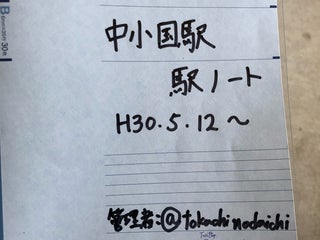 中小国駅
駅ノート
H30.5.12～
管理者:@tokachinodaichi